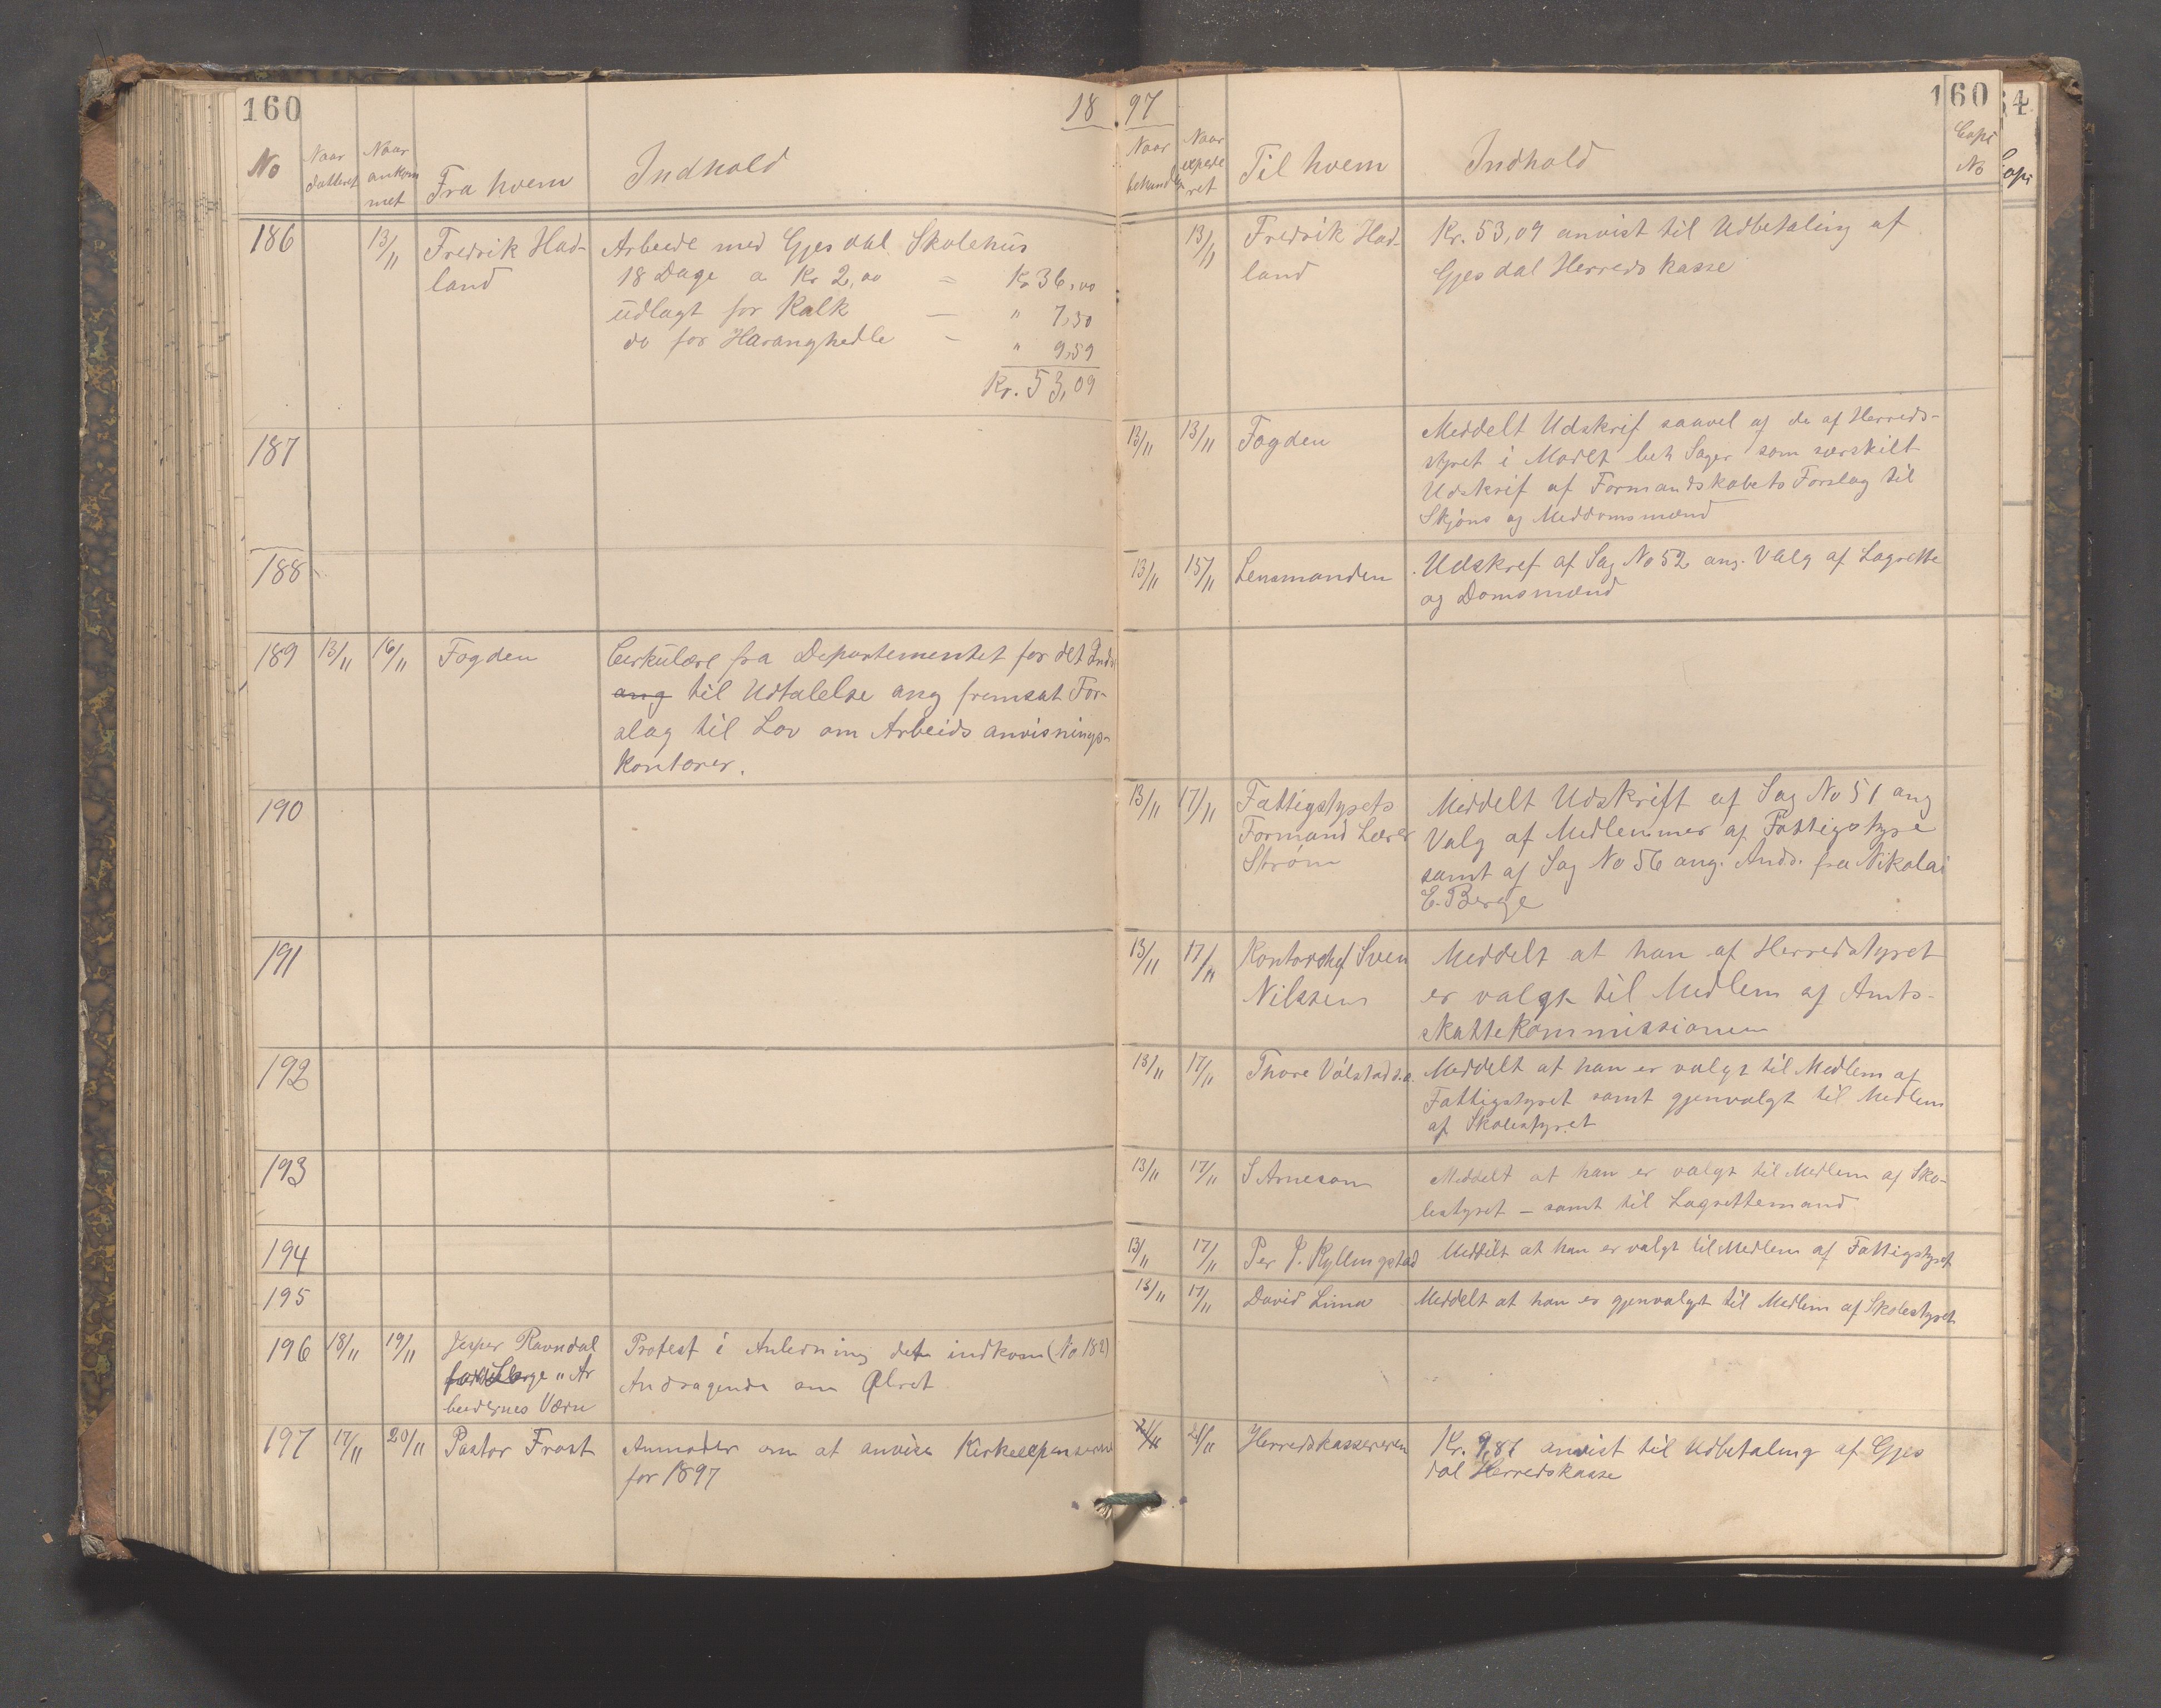 160
18 97
160
No
Naar datteret
Naar ankommet
Fra hvem
Indhold
Naar behandlet
Naar expederet
Til hvem
Indhold
Copi No
186
13/11
Fredrik Had-
land
Arbeide med Gjesdal Skolehus
18 Dage a Kr 2,00 = Kr 36,00
udlagt for Kalk — " 7,50
do for Haranghedle - " 9,59
Kr. 53,09
13/11
Fredrik Had-
land
Kr. 53,09 anvist til Udbetaling af
Gjesdal Herreds kasse
187
13/11 13/11
Fogden
Meddelt Udskrif saavel af de af Herreds-
styret i Mødet beh Sager som særskilt
Udskrif af Formandskabets Forslag til
Skjøns og Meddomsmænd
188
13/11 15/11
Lensmanden
Udskref af Sag No 52 ang. Valg af Lagrette
og Domsmænd
189
13/11 16/11
Fogden
Cirkulære fra Departementet for det Indr
ang til Udtalelse ang fremsat For-
slag til Lov om Arbeids anvisnings-
kontorer.
190
13/11 17/11
Fattigstyrets
Formand Lærer
Strøm
Meddelt Udskrift af Sag No 51 ang
Valg af Medlemmer af Fattigstyre
samt af Sag No 56 ang. Andr. fra Nikolai
E. Berge
191
13/11 17/11
Kontorchef Sven
Nilssen
Meddelt at han af Herredstyret
er valgt til Medlem af Amts-
skattekommissionen
192
13/11 17/11
Thore Vølstad s.e.
Meddelt at han er valgt til Medlem af
Fattigstyret samt gjenvalgt til Medlem
af Skolestyret
193
13/11 17/11
S Arneson
Meddelt at han er valgt til Medlem af Sko-
lestyret — samt til Lagrettemand
194
13/11 17/11
Per J. Kyllingstad
Meddelt at han er valgt til Medlem af Fattigstyret
195
13/11 17/11
David Lima
Meddelt at han er gjenvalgt til Medlem af Skolestyret
196
18/11 19/11
Jesper Ravndal
"Ar
beidernes Værn
Protest i Anledning det indkom (No 182)
Andragende om Ølret
197
17/11 20/11
Pastor Frost
Anmoder om at anvise Kirkeexpenserne
for 1897
21/11
Herredskassereren
Kr. 9,87 anvist til Udbetaling af Gjes
dal Herredskasse